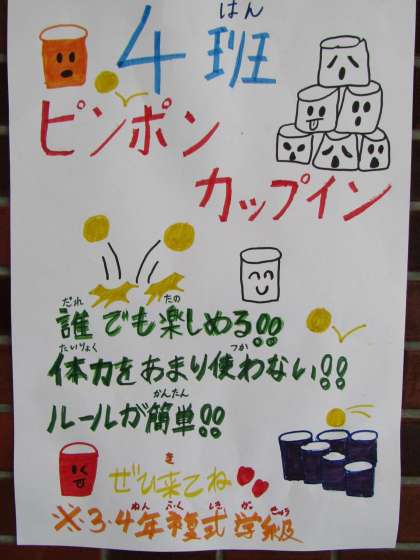 はん
4班
ピンポン
カップイン
だれ たの
誰でも楽しめる!!
たいりょく つか
体力をあまり使わない!!
かんたん
ルールが簡単!!
き
ぜひ来てね
ねん ふく しき がっ きゅう
※3・4年複式学級